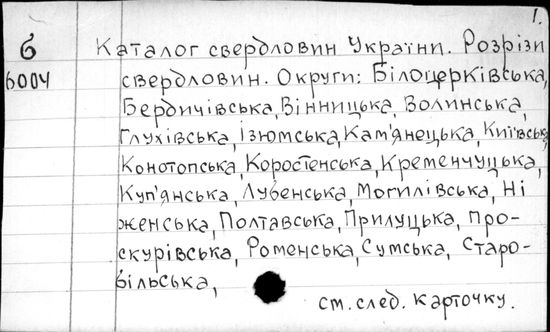 1.
6 Каталог свердловин України. Розрізи
6004 свердловин. Округи: Білоцерківська,
Бердичівська, Вінницька, Волинська,
Глухівська, Ізюмська, Кам'янецька, Київська,
Конотопська, Коростенська, Кременчуцька,
Куп'янська, Лубенська, Могилівська, Ні
женська, Полтавська, Прилуцька, Про-
скурівська, Роменська, Сумська, Старо-
більська,
см. след. карточку.